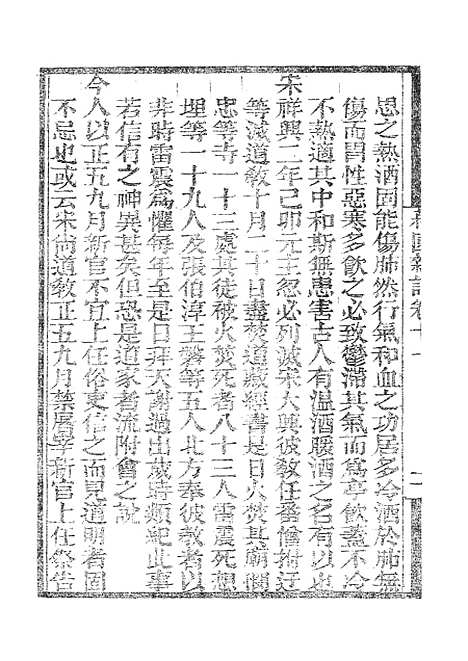 愚之熱酒固能傷肺然行氣和血之功居多冷酒於肺無
傷而胃性惡寒多飲之必致鬱滯其氣而為亭飲蓋不冷
不熱適其中和斯無患害古人有溫酒暖酒之名有以也
宋祥興二年己卯元主忽必列滅宋大興彼教任番僧
等滅道教十月二十日盡焚道藏經書是日火焚其廟
忠等寺一十三處其徒被火焚死者八十三人雷震死想
埋等一十九人及張伯淳王磐等五人北方奉彼教者以
非時雷震為懼每年至是日拜天謝過出歲時類紀此事
若信有之神異甚矣但恐是道家者流附會之說
今人以正五九月新官不宜上任俗吏信之而見道明者固
不忌也或云宋尚道教正五九月禁屠宰新官上任祭告